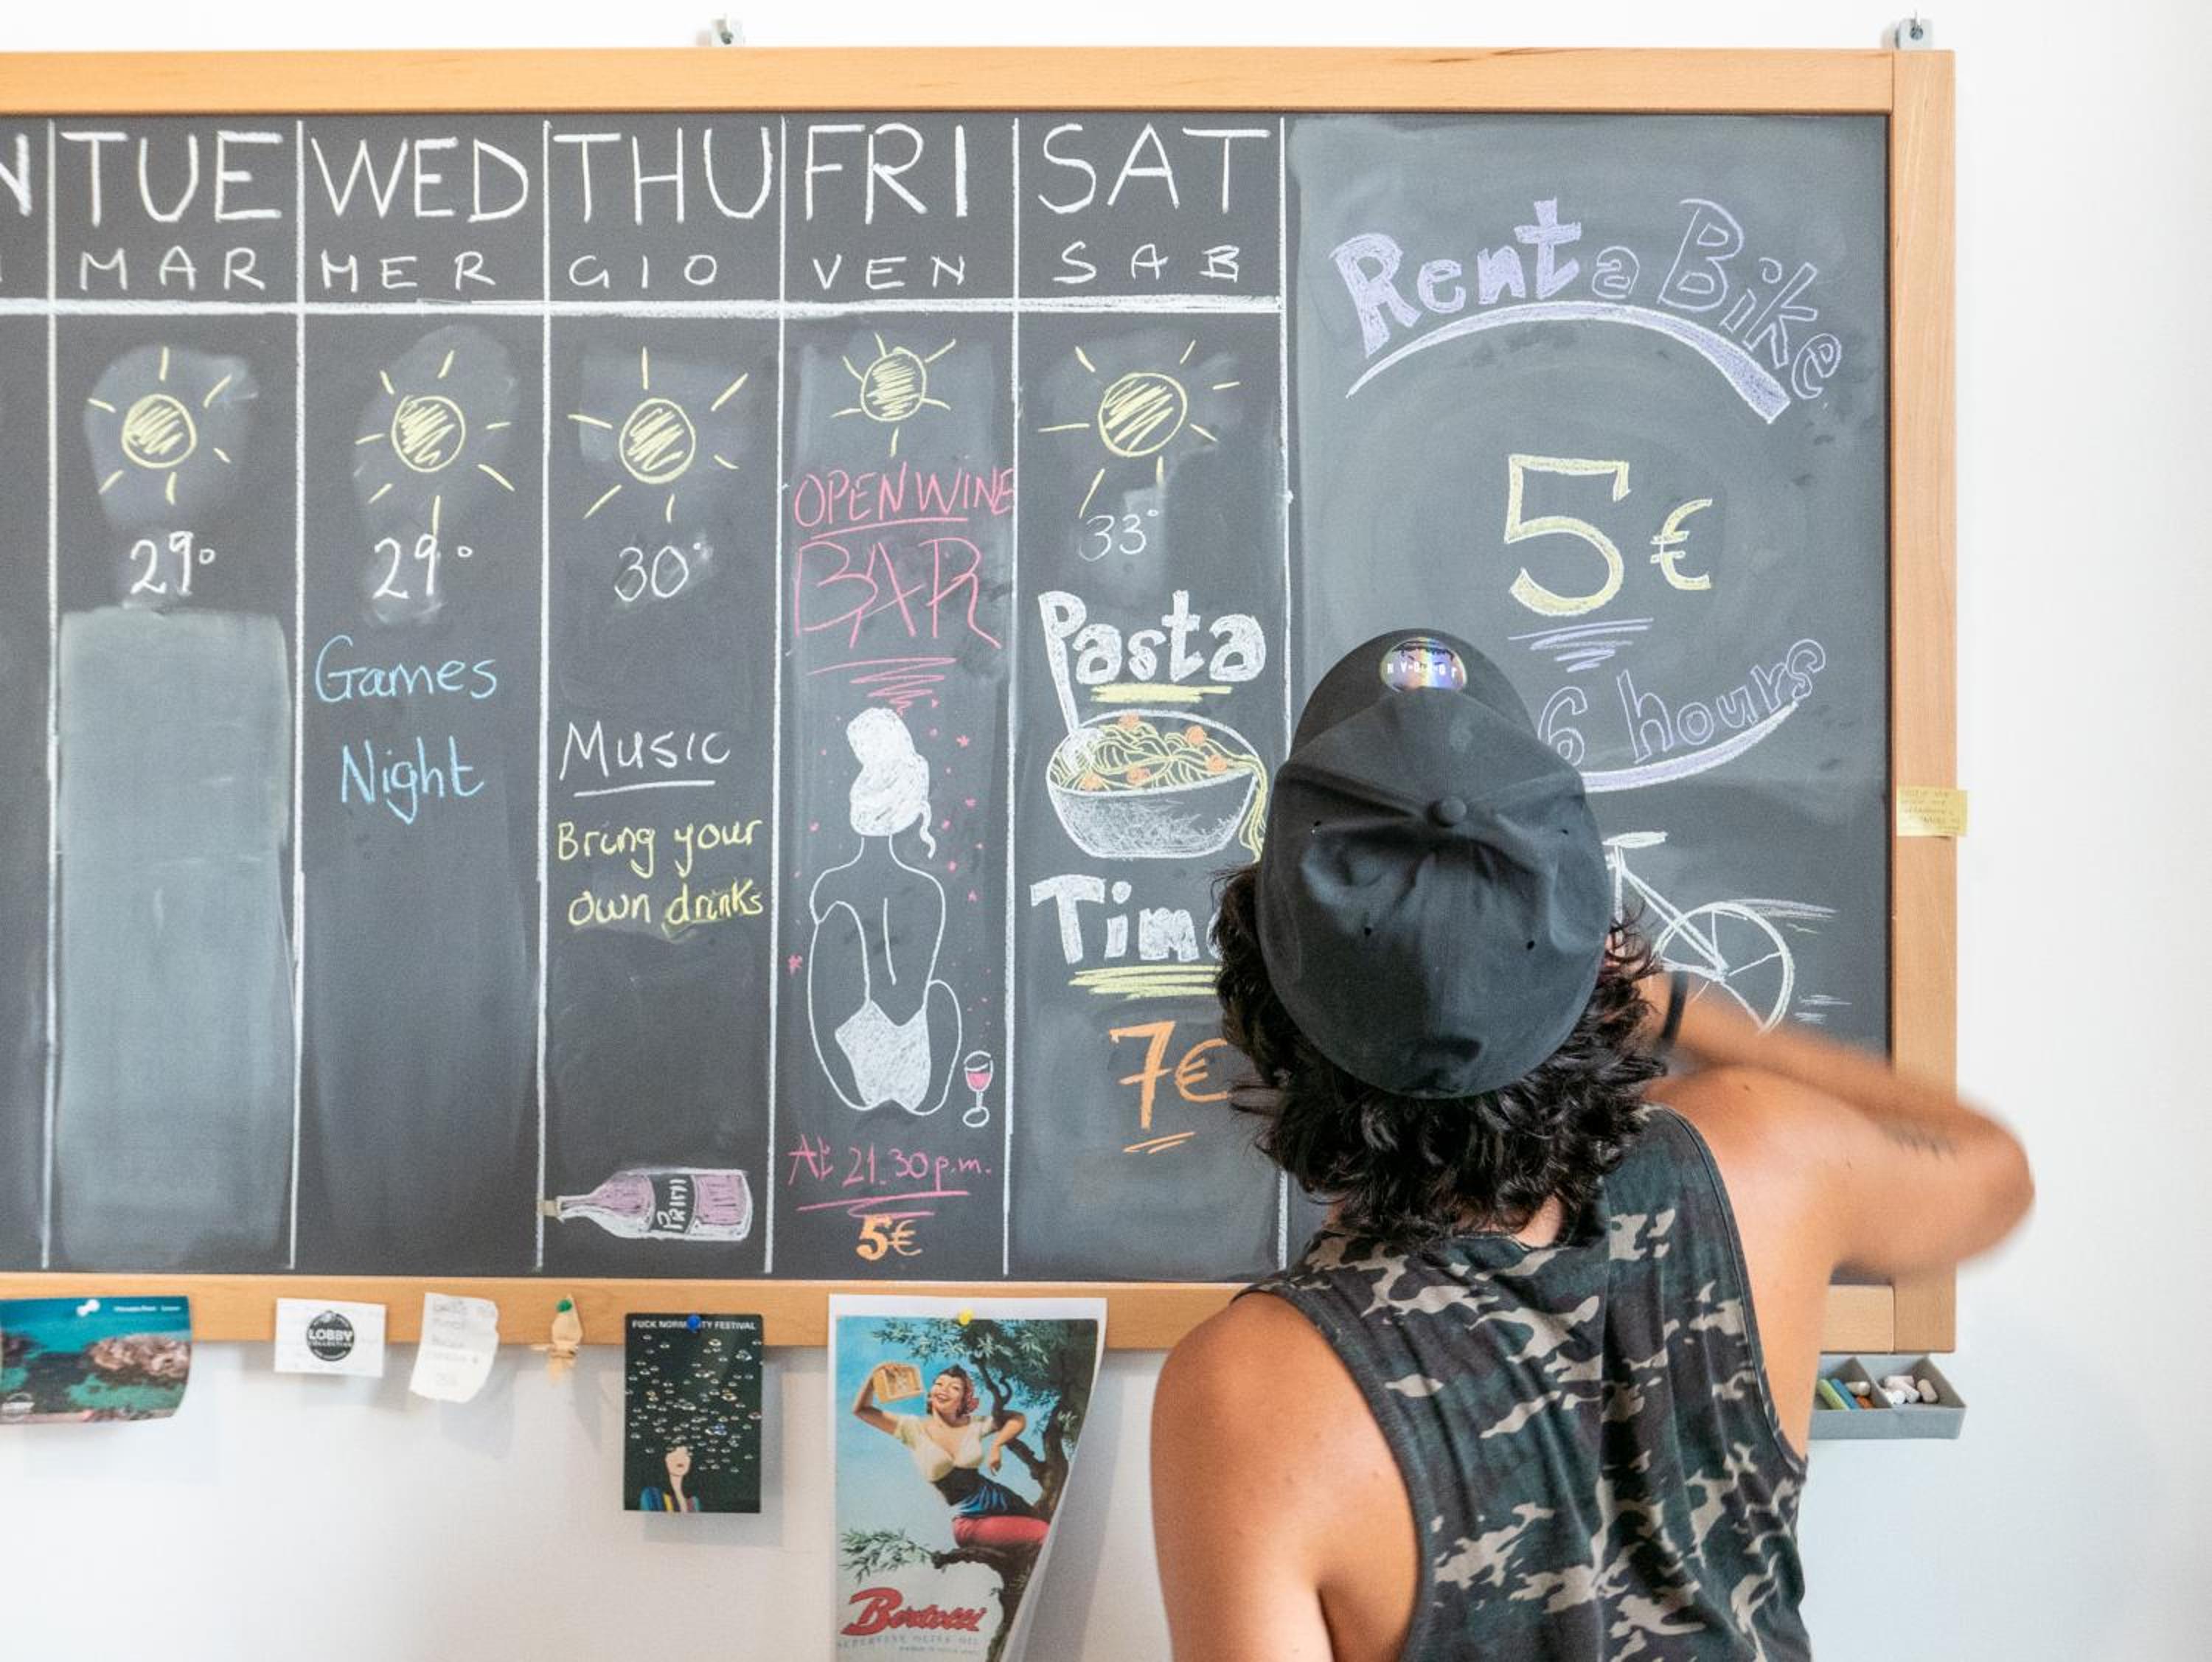 TUE
MAR
29°
WED
MER
29°
Games
Night
THU
GIO
30°
Music
Bring your
own drinks
FRI
VEN
OPEN WINE
BAR
At 21.30 p.m.
5€
SAT
SAB
33°
Pasta
Time
7€
Rent a Bike
5€
6 hours
LOBBY
FUCK NORMALITY FESTIVAL
Bertolli
SUPERFINE OLIVE OIL